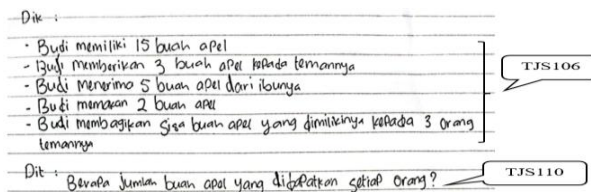 Dik :
- Budi memiliki 15 buah apel
- Budi memberikan 3 buah apel kepada temannya
- Budi menerima 5 buah apel dari ibunya
- Budi memakan 2 buah apel
- Budi membagikan sisa buah apel yang dimilikinya kepada 3 orang
temannya
TJS106
Dit :
Berapa jumlah buah apel yang didapatkan setiap orang?
TJS110